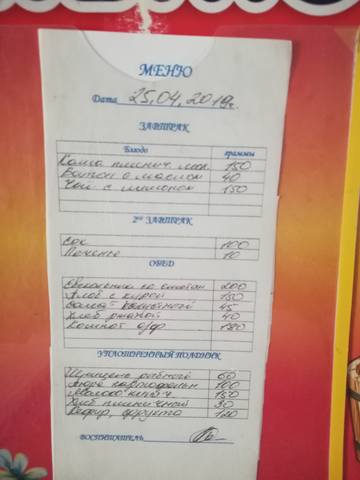 МЕНЮ
Дата 25.04.2019г.
ЗАВТРАК
Блюдо граммы
Каша пшенич. мол. 150
Батон с маслом 40
Чай с лимоном 150
2ой ЗАВТРАК
Сок 100
Печенье 10
ОБЕД
Свекольник со сметан 200
Плов с курой 150
хлеб ржаной 40
Компот с/ф 180
УПЛОТНЕННЫЙ ПОЛДНИК
Шницель рыбный 60
Пюре картофельн 100
Молоко кипяч. 150
Хлеб пшеничной 30
Кефир, фрукты 120
ВОСПИТАТЕЛЬ